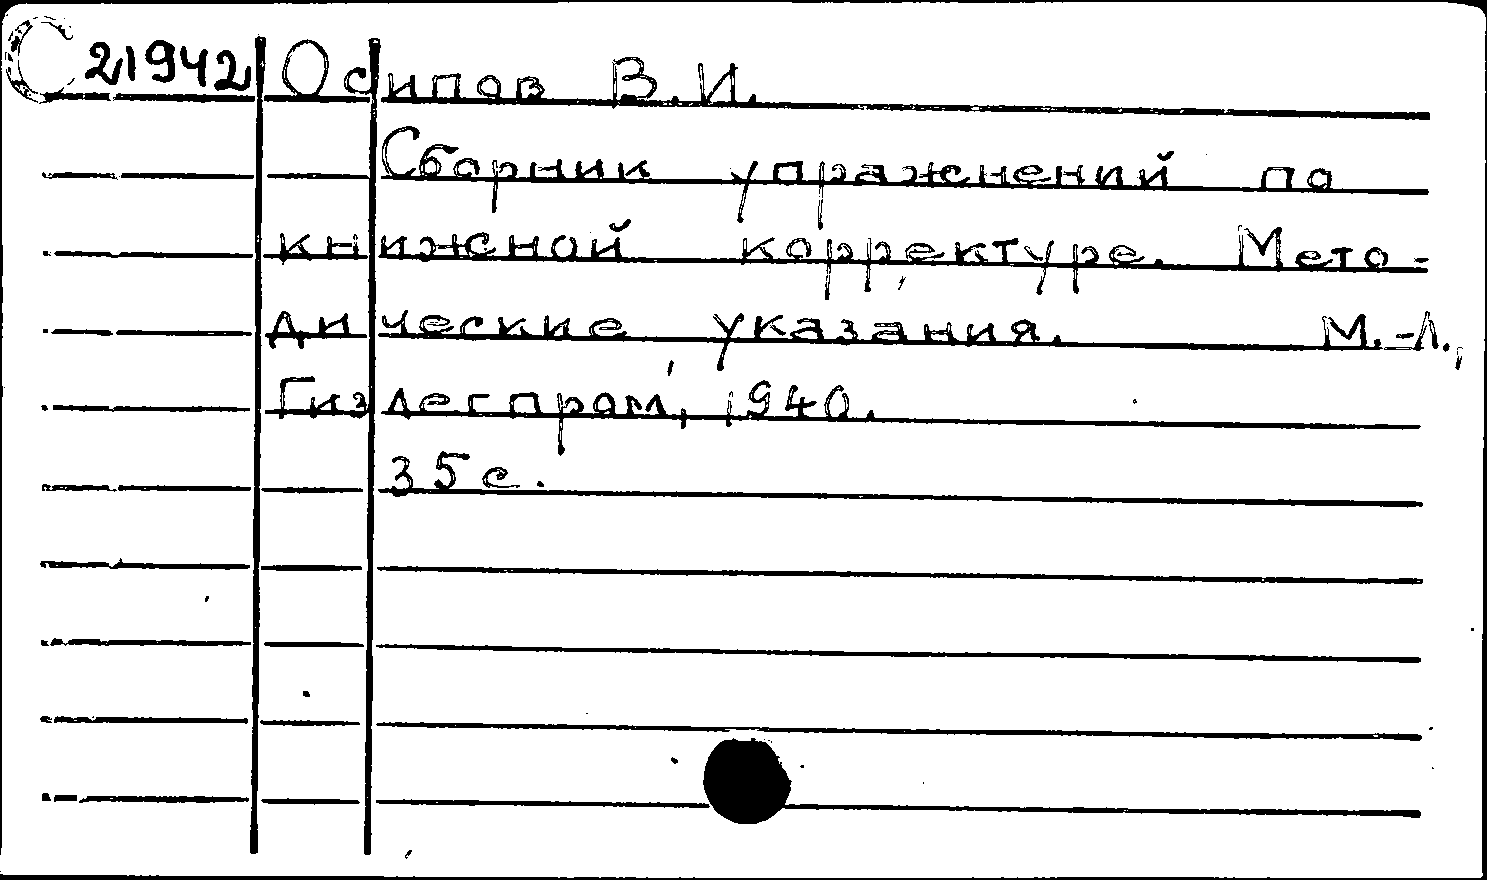 С 21942 Осипов В.И.
Сборник упражнений по
книжной корректуре. Мето-
дические указания. М.-Л.,
Гизлегпром, 1940.
35 с.